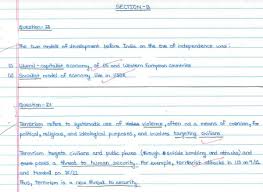 SECTION-B
Question-20
The two models of development before India on the eve of independence was:
(i) Liberal-capitalist economy, of US and Western European countries
(ii) Socialist model of economy like in USSR.
Question-21
Terrorism refers to systematic use of violence, often as a means of coercion, for
political, religious, and ideological purposes, and involves targeting civilians.
Terrorism targets civilians and public places (through suicide bombing and attacks) and
poses a threat to human security. For example, terrorist attacks in US on 9/11
and Mumbai on 26/11
Thus, Terrorism is a new threat to security.